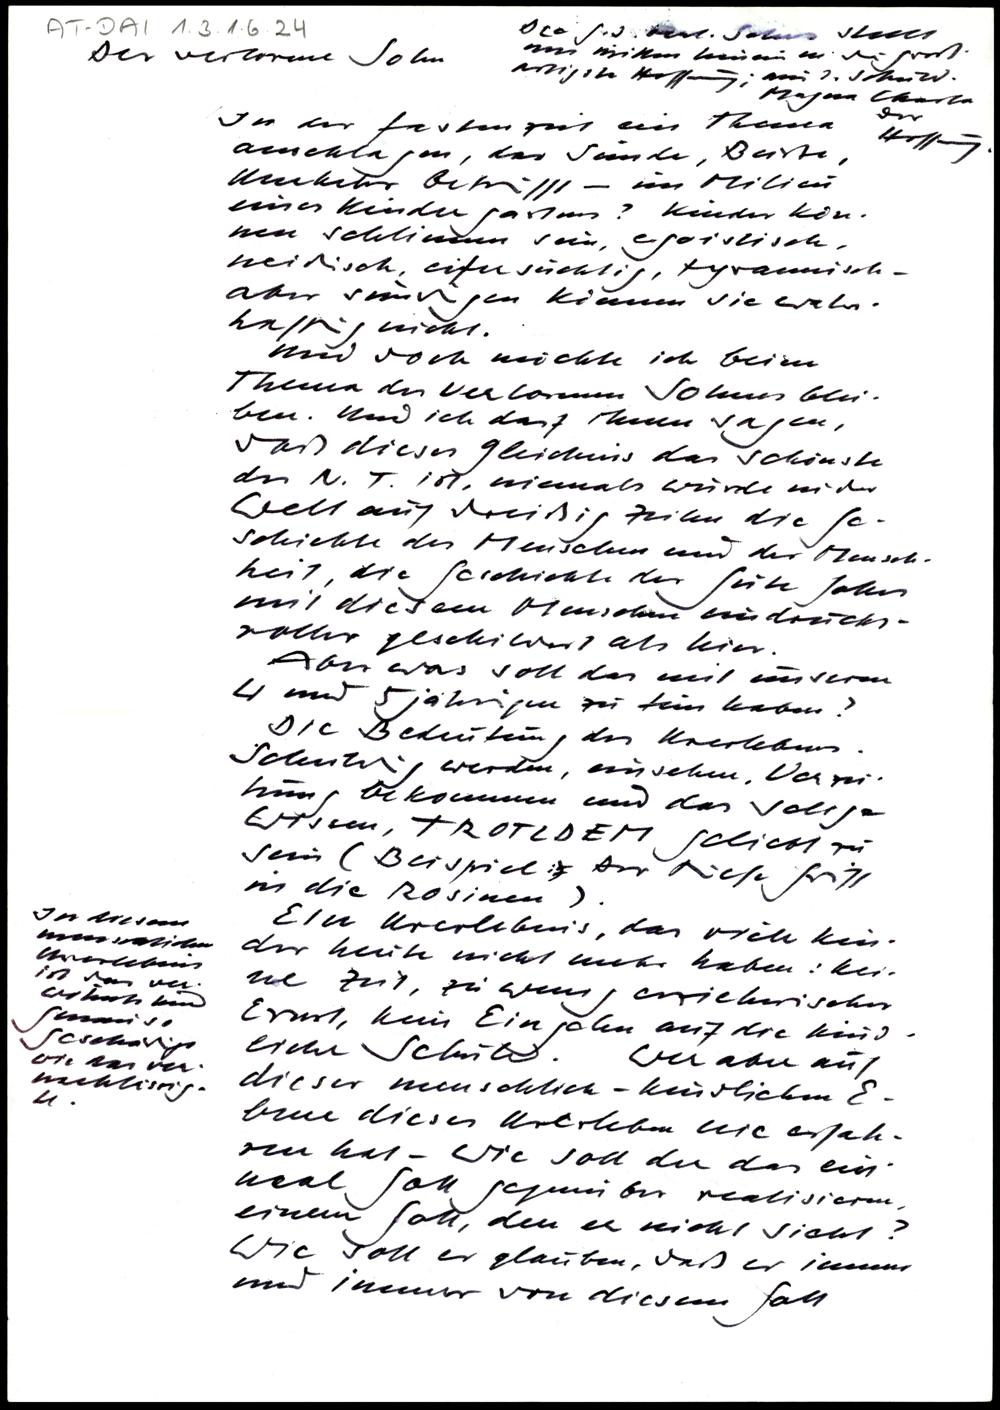 AT-DAI 1.3.1.6.24
Der verlorene Sohn
Das G. d. verl. Sohns stellt
uns mitten hinein in die groß-
artigste Hoffnung; aus d. Schuld.
Magna Charta
der
Hoffnung.
In der Fastenzeit ein Thema
anschlagen, das Sünde, Beichte,
Umkehr betrifft – im Milieu
eines Kindergartens? Kinder kön-
nen schlimm sein, egoistisch,
neidisch, eifersüchtig, tyrannisch –
aber sündigen können sie wahr-
haftig nicht.
Und doch möchte ich beim
Thema des Verlorenen Sohnes blei-
ben. Und ich darf Ihnen sagen,
daß dieses Gleichnis das schönste
des N. T. ist, niemals wurde in der
Welt auf dreißig Zeilen die Ge-
schichte des Menschen und der Mensch-
heit, die Geschichte der Güte Gottes
mit diesem Menschen eindrucks-
voller geschildert als hier.
Aber was soll das mit unseren
4 und 5jährigen zu tun haben?
Die Bedeutung des Urerlebens.
Schuldig werden, einsehen, Verzei-
hung bekommen und das selige
Wissen, TROTZDEM geliebt zu
sein (Beispiel: Der tiefe Griff
in die Rosinen).
Ein Urerlebnis, das viele Kin-
der heute nicht mehr haben: kei-
ne Zeit, zu wenig erzieherischer
Ernst, kein Eingehn auf die kind-
liche Schuld. Wer aber auf
dieser menschlich-kindlichen E-
bene dieses Urerleben nie erfah-
ren hat – wie soll der das ein-
mal Gott gegenüber realisieren,
einem Gott, den er nicht sieht?
Wie soll er glauben, daß er immer
und immer von diesem Gott
In diesem
menschlichen
Urerlebnis
ist das ver-
wöhnte Kind
genauso
geschädigt
wie das ver-
nachlässig-
te.